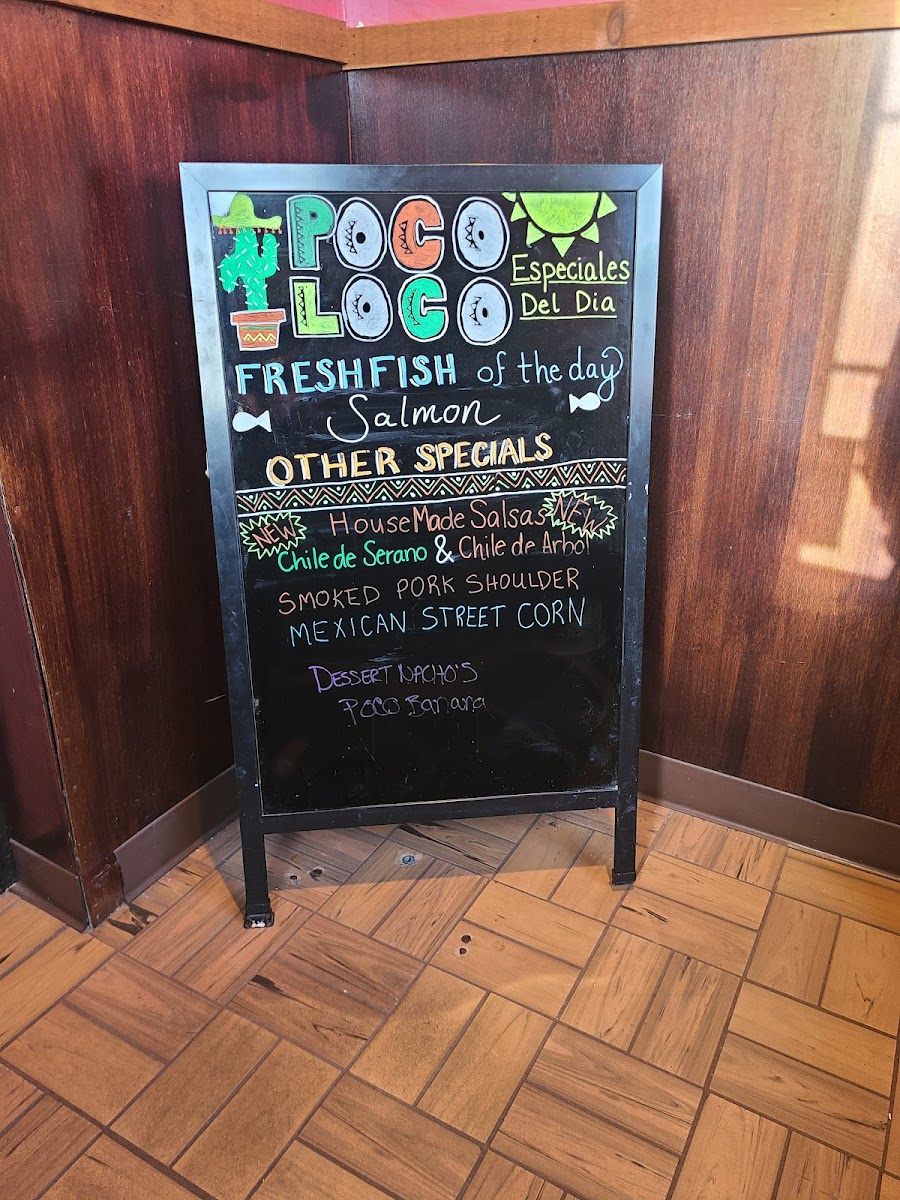 POCO
LOCO
Especiales
Del Dia
FRESH FISH of the day
Salmon
OTHER SPECIALS
NEW House Made Salsas NEW
Chile de Serano & Chile de Arbol
SMOKED PORK SHOULDER
MEXICAN STREET CORN
DESSERT NACHO'S
POCO Banana